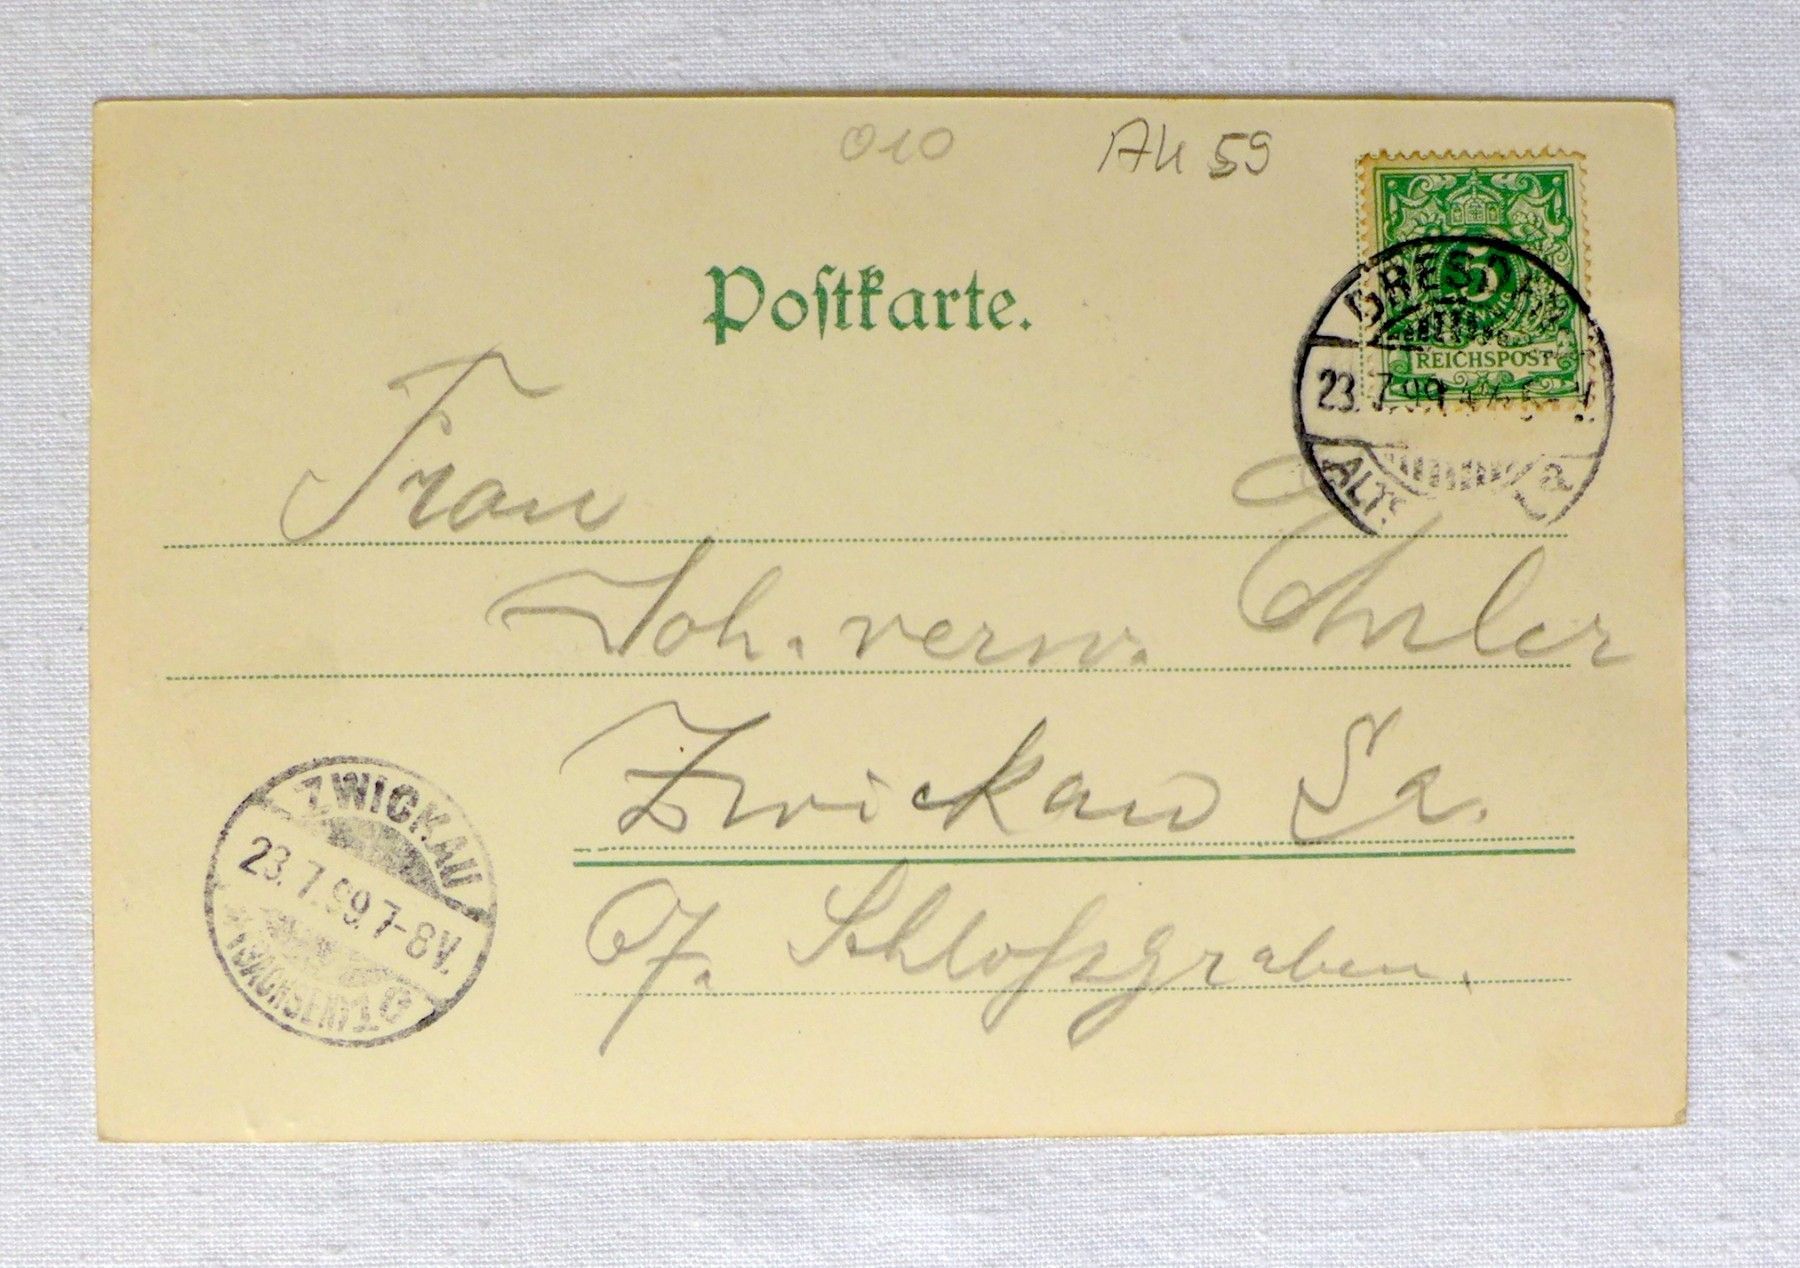 010 AK 59
Postkarte.
5
PFENNIG
REICHSPOST
DRESDEN
23.7.99.
ALTST.
a
Frau
Joh. verw. Ehrler
Zwickau Sa.
Schloßgraben.
ZWICKAU
23.7.99.7-8V.
(SACHSEN) 1 c